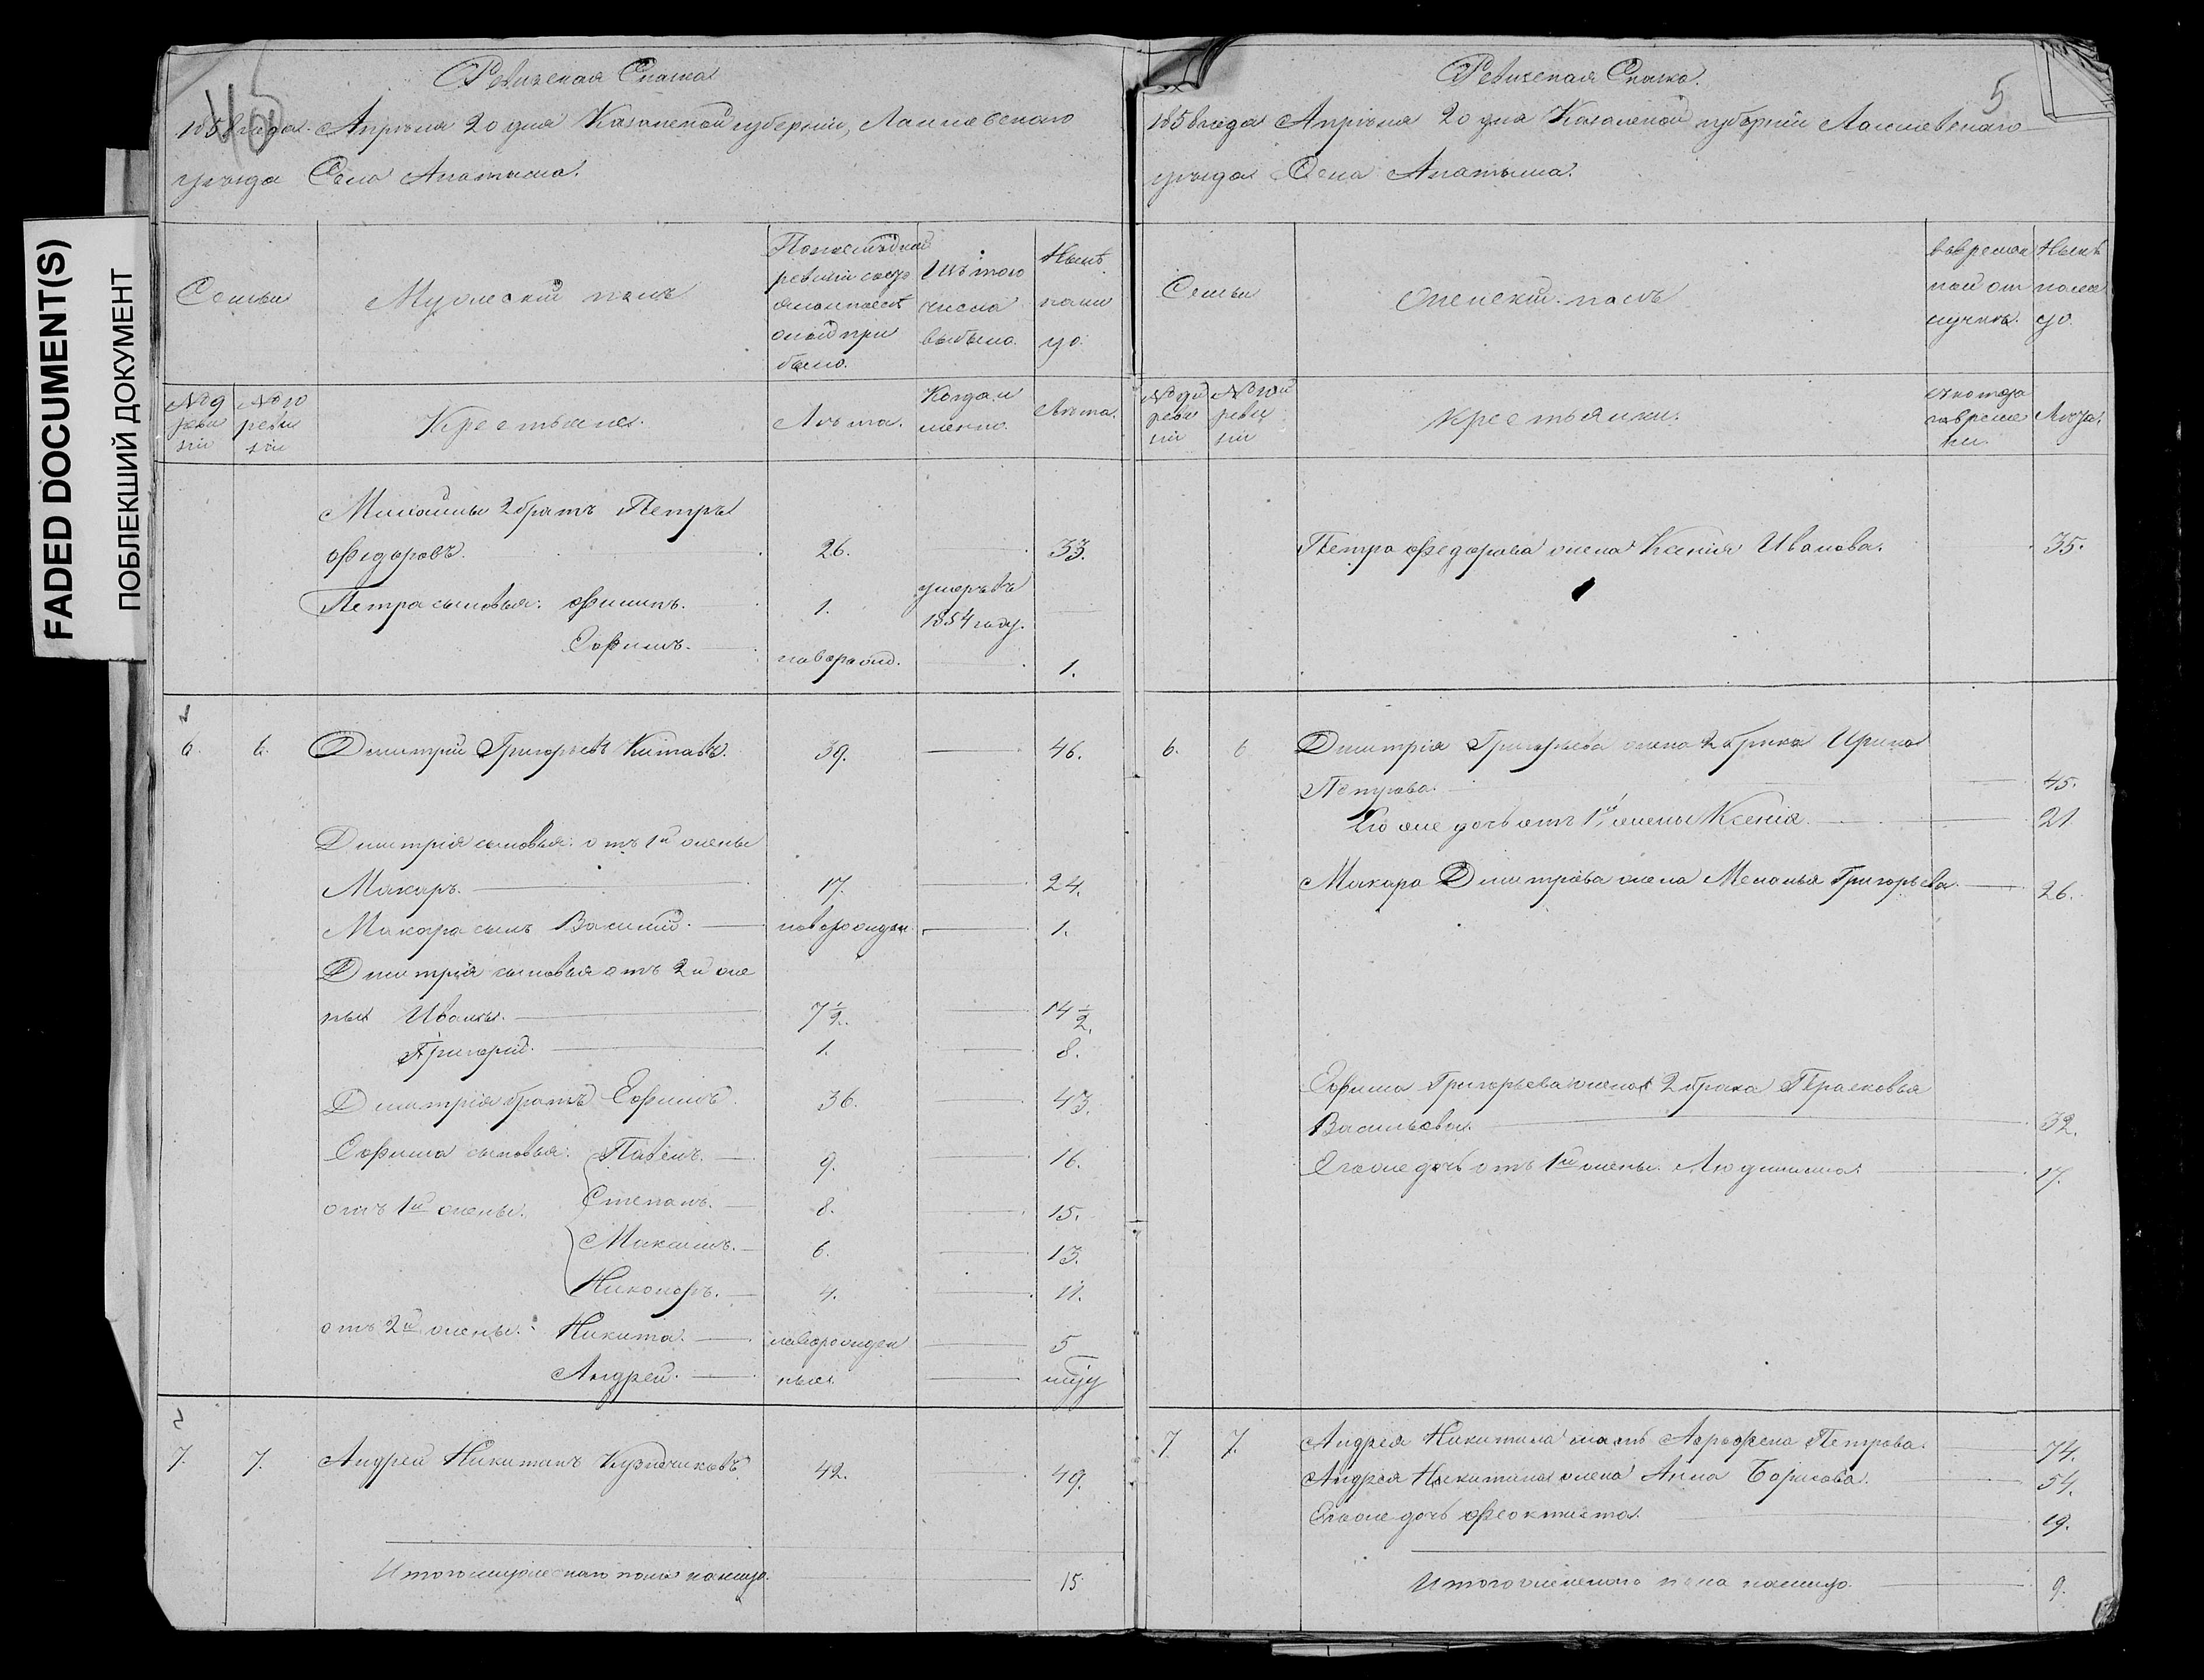 FADED DOCUMENT(S)
ПОБЛЕКШИЙ ДОКУМЕНТ
Ревизская Сказка
1858 года Апрѣля 20 дня Казанской губерніи, Лаишевскаго
уѣзда Села Анатыша.
Семьи
Мужескій полъ
По последней
ревизіи состо
яло и после
оной при
было.
Изъ того
числа
выбыло.
Нынѣ
нали
цо.
№ 9
реви
зіи
№ 10
реви
зіи
Крестьяне.
Лѣта.
Когда и
менно.
Лѣта.
2 братъ Петръ
Федоровъ. 26. 33.
Петра сыновья: Филипъ. 1. умеръ въ 1854 году.
Ефимъ. новорожд. 1.
6. 6. Димитрій Григорьевъ Китаевъ. 39. 46.
Димитрія сыновья: отъ 1й жены
Макаръ. 17. 24.
Макара сынъ Василій. новорожден. 1.
Димитрія сыновья отъ 2й же
ны Иванъ. 7 1/2. 14 1/2.
Григорій. 1. 8.
Димитрія братъ Ефимъ. 36. 43.
Ефима сыновья: Павелъ. 9. 16.
отъ 1й жены. Степанъ. 8. 15.
Максимъ. 6. 13.
Никоноръ. 4. 11.
отъ 2й жены: Никита. новорожден 5
Андрей. ные
7. 7. Андрей Никитинъ Кузнечиковъ. 42. 49.
Итого мужескаго пола налицо. 15
5
Ревизская Сказка.
1858 года Апрѣля 20 дня Казанской губерніи Лаишевскаго
уѣзда Села Анатыша.
Семьи
Женскій полъ
во времен
ной от
лучкѣ.
Нынѣ
нали
цо.
№ 9й
реви
зіи
№ 10й
реви
зіи
Крестьянки.
съ котора
го време
ни.
Лѣта.
Петра Федорова жена Ксенія Иванова. 35.
6. 6 Димитрія Григорьева жена 2 брака Ирина
Петрова. 45.
Его же дочь отъ 1й жены Ксенія. 21
Макара Димитріева жена Меланья Григорьева. 26.
Ефима Григорьева жена 2 брака Прасковья
Васильева. 32.
Его же дочь отъ 1й жены Людмила. 17.
7 7. Андрея Никитина мать Аграфена Петрова. 74.
Андрея Никитина жена Анна Борисова. 54.
Его же дочь Феоктиста. 19.
Итого женскаго пола налицо. 9.